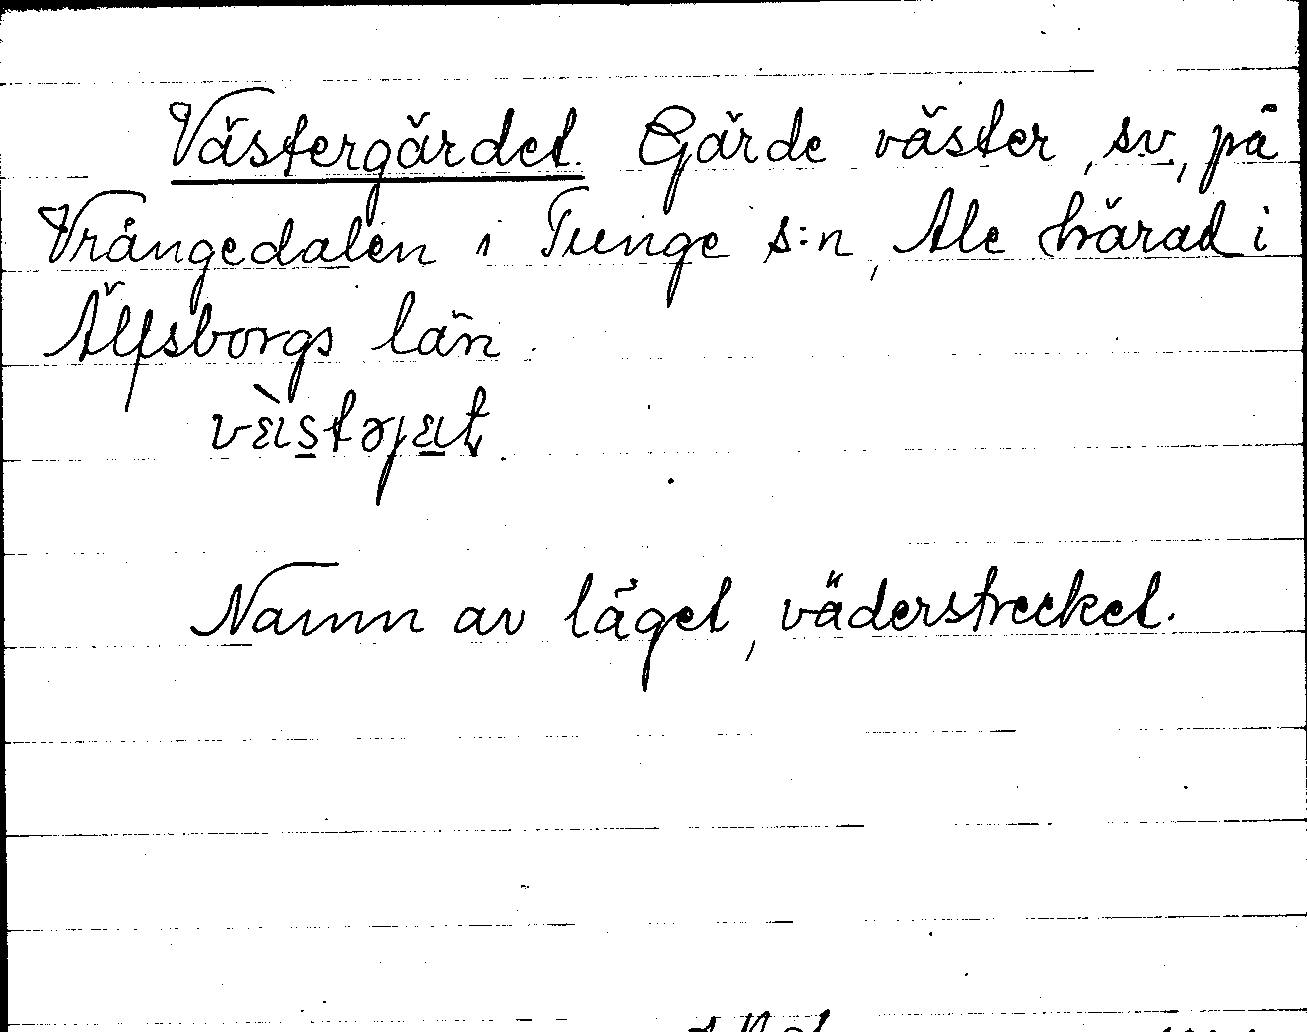 Västergärdet. Gärde väster, sv, på
Vrångedalen i Tunge s:n, Ale härad i
Älfsborgs län.
Namn av läget, väderstrecket.